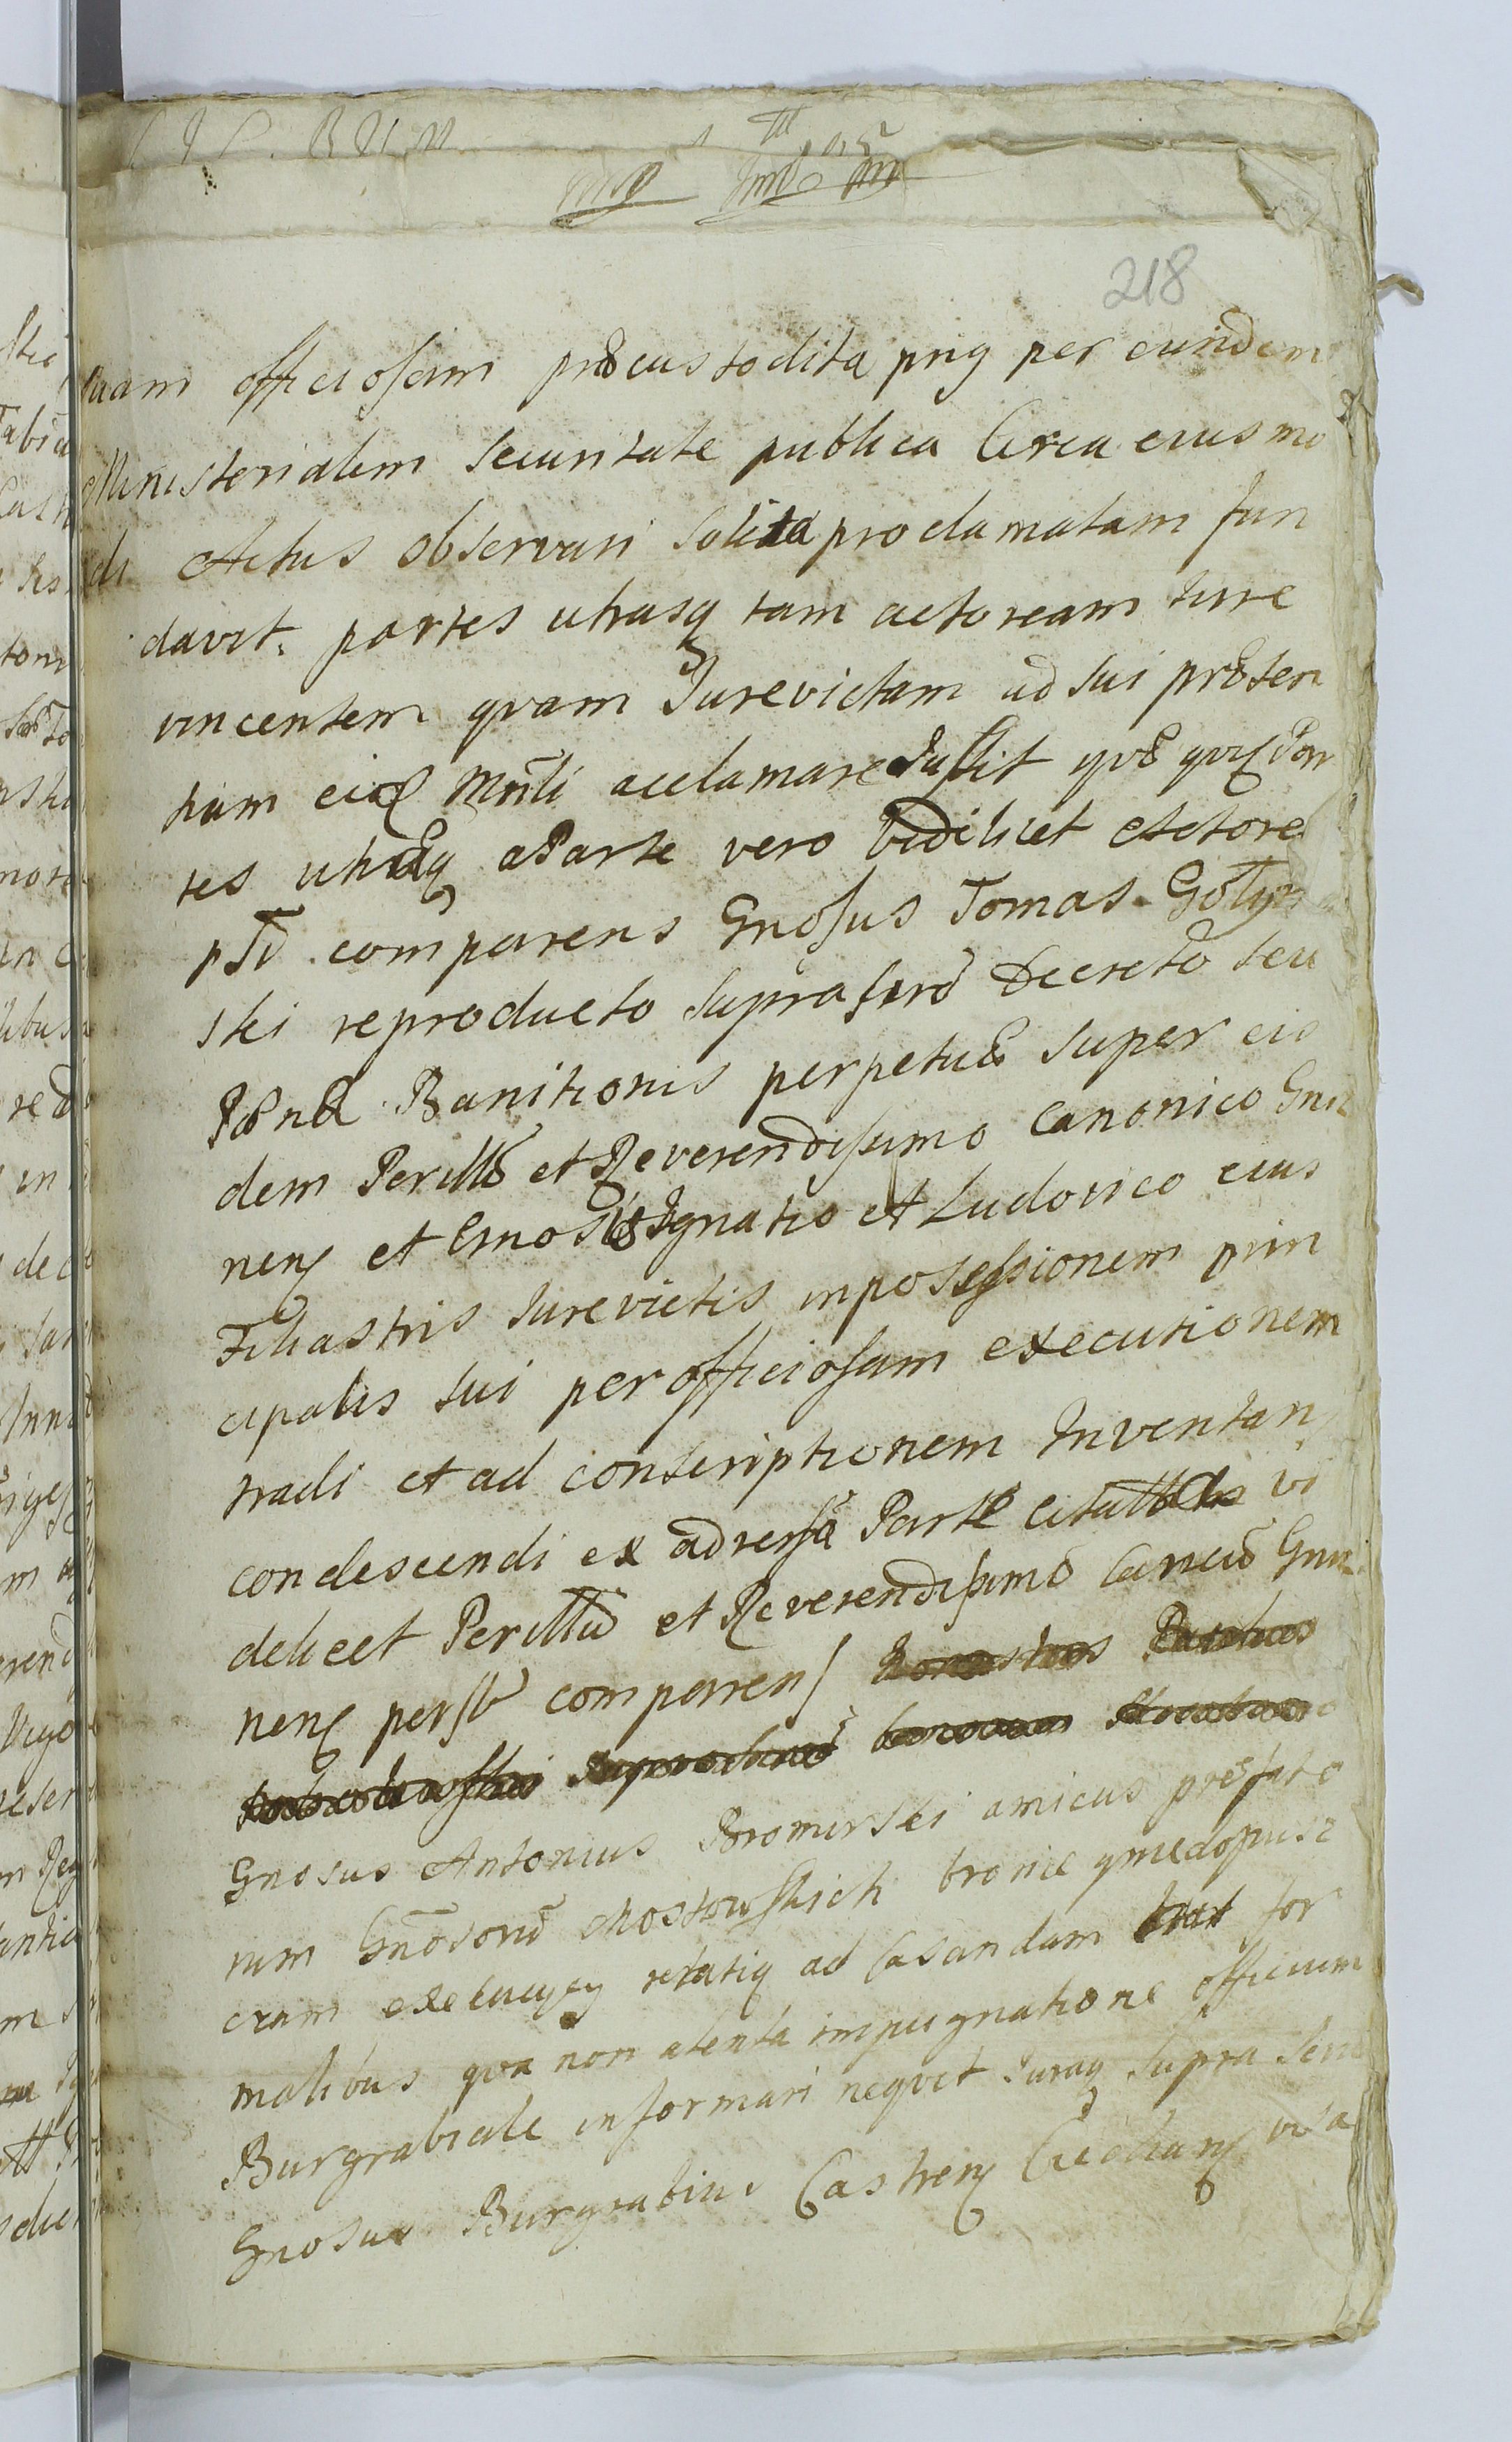 218
suam officiosam præcustodita prig per eundem
Ministerialem Securitate publica Circa eiusmo
di Actus observari solita proclamatam fun
davit. partes utrasq tam actoream iure
vincentem quam Jurevictam ad sui præsen
tiam eid Mnli acclamare Jussit quæ quid Par
tes utræq a Parte vero videlicet Actorea
comparens Gnosus Tomas Golyn
ski reproducto suprascrō Decreto seu
Pœna Banitionis perpetuæ super eis
dem Perillō et Reverendissimo Canonico Gnez
nenſ et Gnosis Ignatio et Ludovico eius
Filiastris Jurevictis in possessionem prin
cipalis sui per officiosam executionem
tradi et ad conscriptionem Inventarij
condescendi ex adversa Parte citatt vi
delicet Perillū et Reverendissimō Canco Gnez
nenſ comparenſ
Gnosus Antonius Bromirski amicus præfato
rum Gnōsorū Mostowskich bronie yniedopusz
czam exekucyey relatiq ad Casandam for
malibus qva non atenta impugnatione officium
Burgrabiale informari nequit Juraq Supra
Gnosus Burgrabius Castrenſ Ciechanſ visa